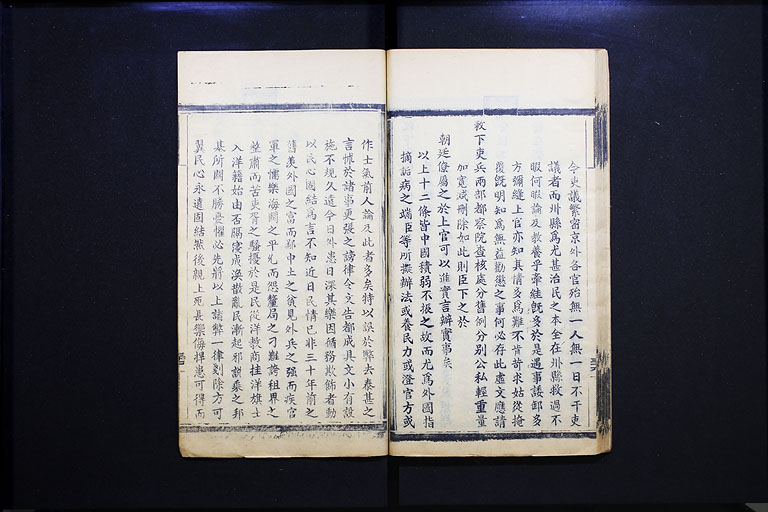 今吏議繁密京外各官殆無一人無一日不干吏
議者而州縣為尤甚治民之本全在州縣救過不
暇何暇論及教養乎牽絓既多於是遇事諉卸多
方彌縫上官亦知其情多為難不肯苛求姑從掩
覆既明知為無益勸懲之事何必存此虛文應請
敕下吏兵兩部都察院查核處分舊例分別公私輕重量
加寬減刪除如此則臣下之於
朝廷僚屬之於上官可以進實言辦實事矣
以上十二條皆中國積弱不振之故而尤為外國指
摘詬病之端臣等所擬辦法或養民力或澄官方或
作士氣前人論及此者多矣特以誤於弊去泰甚之
言怵於諸事更張之謗律令文告都成具文小有設
施不規久遠今日外患日深其樂因循務欺飾者動
以民心固結為言不知近日民情已非三十年前之
舊羨外國之富而鄙中土之貧見外兵之強而疾官
軍之懦樂海關之平允而怨釐局之刁難誇租界之
整肅而苦吏胥之騷擾於是民從洋教商挂洋旗士
入洋籍始由否隔寖成渙散亂民漸起邪說乘之邦
基所關不勝憂懼必先將以上諸弊一律剗除方可
冀民心永遠固結然後親上死長禦侮捍患可得而